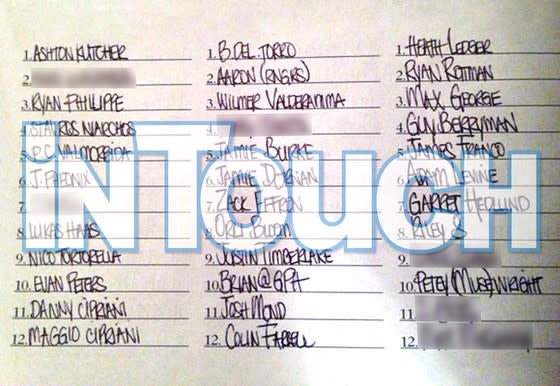 1. ASHTON KUTCHER
2.
3. RYAN PHILIPPE
4. STAVROS NIARCHOS
5. P.C. VALMORBIDA
6. J. PHEONIX
7.
8. LUKAS HAAS
9. NICO TORTORELLA
10. EVAN PETERS
11. DANNY CIPRIANI
12. MAGGIO CIPRIANI
1. B. DEL TORRO
2. AARON (RNGRS)
3. WILMER VALDERAMMA
4.
5. JAMIE BURKE
6. JAMIE DORNAN
7. ZACK EFFRON
8. ORLI BLOOM
9. JUSTIN TIMBERLAKE
10. BRIAN@GPA
11. JOSH MOND
12. COLIN FARRELL
1. HEATH LEDGER
2. RYAN ROTTMAN
3. MAX GEORGE
4. GUY BERRYMAN
5. JAMES FRANCO
6. ADAM LEVINE
7. GARRET HEDLUND
8. RILEY S
9.
10. PETEY (MUSE) WRIGHT
11.
12.
INTOUCH